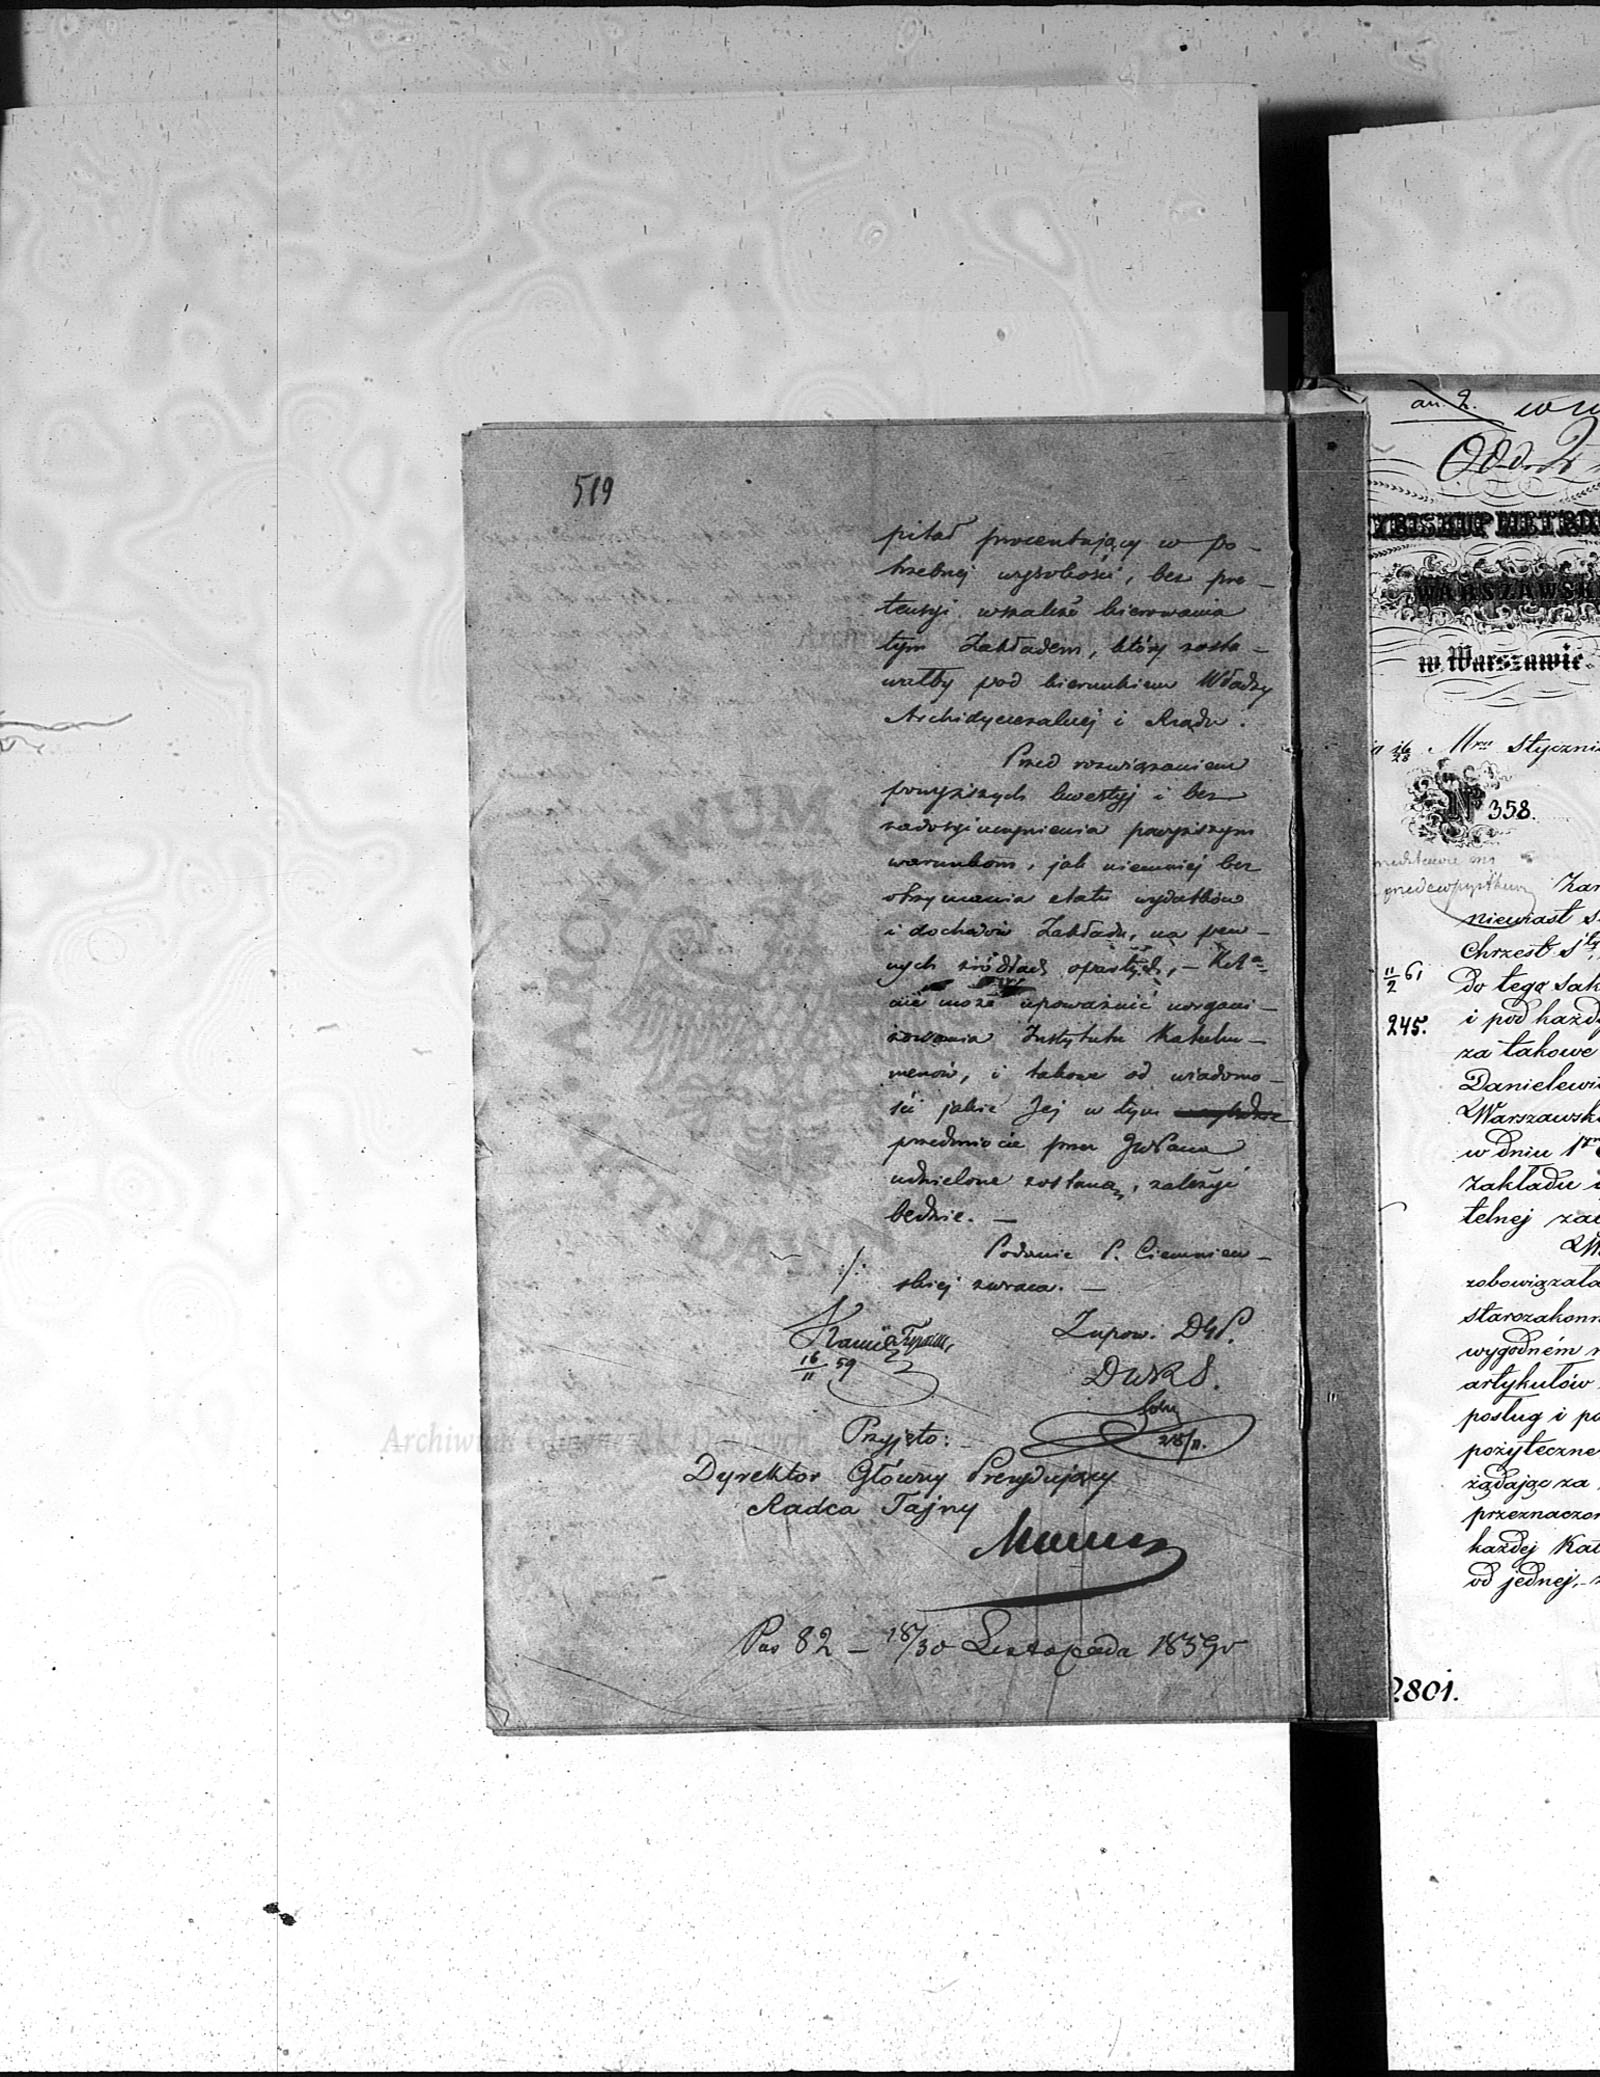 519
pitał procentujący w po-
trzebnej wysokości, bez pre-
tensyi wszakże kierowania
tym Zakładem, który zosta-
wałby pod kierunkiem Władzy
Archidyecezalnej i Rządu.
Przed rozwiązaniem
powyższych kwestyj i bez
zadosyćuczynienia powyższym
warunkom, jak niemniej bez
otrzymania etatu wydatków
i dochodów Zakładu, na pew-
nych źródłach opartych, –
nie może upoważnić uorgani-
zowania Instytutu Katechu-
menów, i takowe od wiadomo-
ści jakie Jej w tym
przedmiocie przez JWPana
udzielone zostaną, zależyć
będzie. —
Podanie P. Ciemniew-
skiej zwraca. —
·/·
16/11 59
Zupow. DGP.
DWRS.
28/11.
Przyjęto:
Dyrektor Główny Prezydujący
Radca Tajny
Pas 82 – 18/30 Listopada 1859 r
an. 2.
WARSZAWSK
w Warszawie.
16/28 Mca Styczni
No 358.
niewiast s
Chrzest Sty
11/2 61
do tego Sak
245.
i pod każd
za takowe
Danielewi
Warszawsk
w dniu 1go
Zakładu i
telnej za
zobowiązała
starozakonn
wygodném
artykułów
posług i po
pożyteczne
żądając za
przeznaczon
każdej Kat
od jednej,-
2801.
Archiwum Główne Akt Dawnych
ARCHIWUM G
AKT DAWN